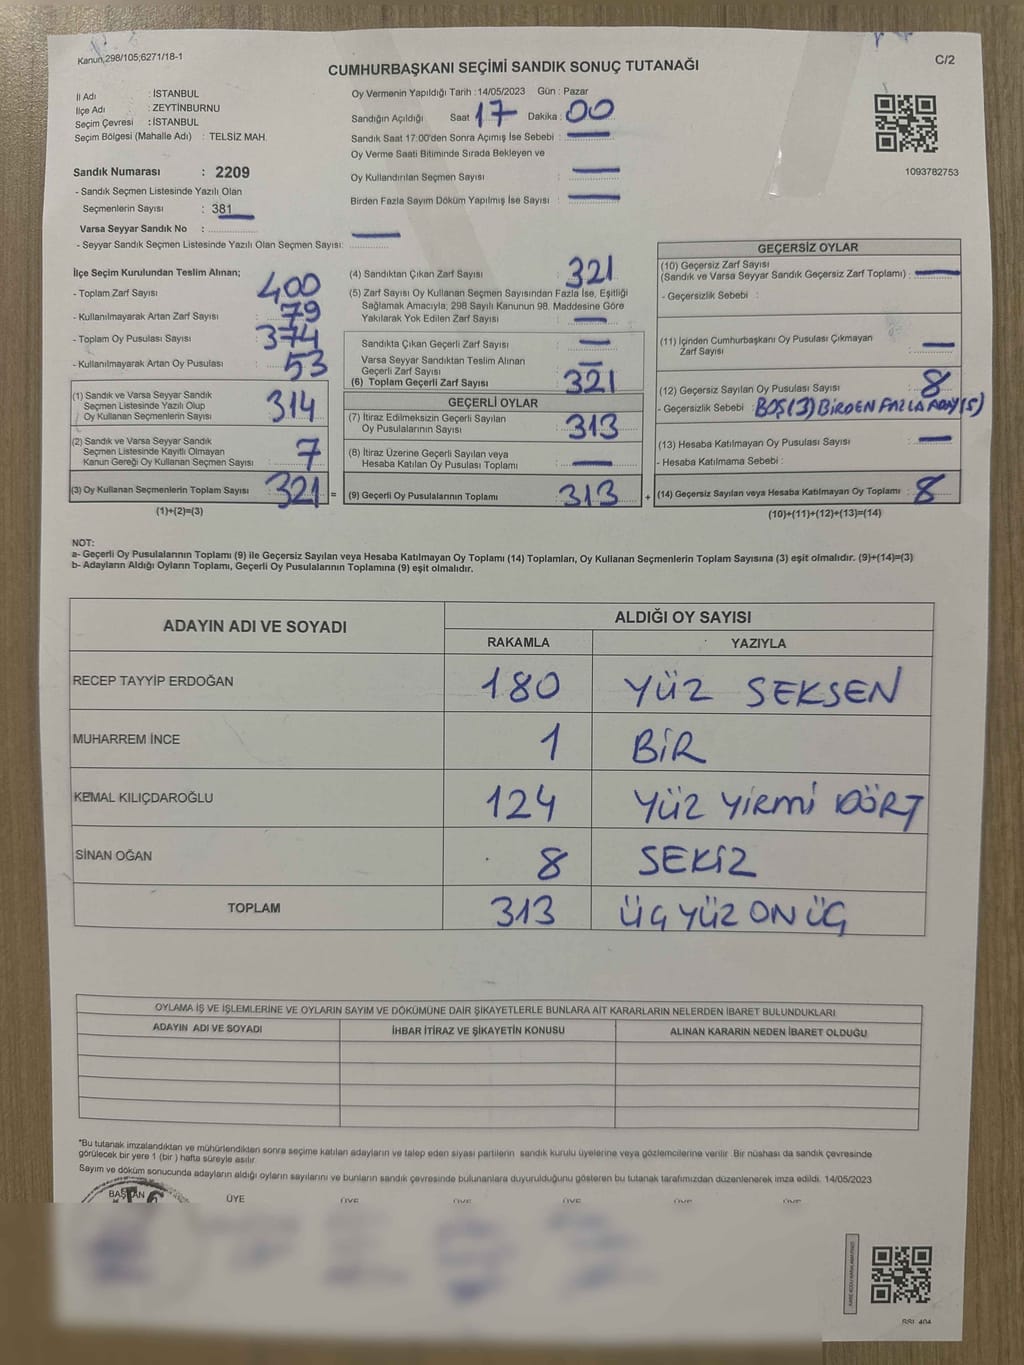 Kanun,298/105;6271/18-1
C/2
CUMHURBAŞKANI SEÇİMİ SANDIK SONUÇ TUTANAĞI
İl Adı : İSTANBUL
İlçe Adı : ZEYTİNBURNU
Seçim Çevresi : İSTANBUL
Seçim Bölgesi (Mahalle Adı) : TELSİZ MAH.
Sandık Numarası : 2209
- Sandık Seçmen Listesinde Yazılı Olan
Seçmenlerin Sayısı : 381
Varsa Seyyar Sandık No :
- Seyyar Sandık Seçmen Listesinde Yazılı Olan Seçmen Sayısı:
Oy Vermenin Yapıldığı Tarih : 14/05/2023 Gün : Pazar
Sandığın Açıldığı Saat 17 Dakika : 00
Sandık Saat 17:00'den Sonra Açımış İse Sebebi :
Oy Verme Saati Bitiminde Sırada Bekleyen ve
Oy Kullandırılan Seçmen Sayısı :
Birden Fazla Sayım Döküm Yapılmış İse Sayısı :
1093782753
İlçe Seçim Kurulundan Teslim Alınan;
- Toplam Zarf Sayısı : 400
- Kullanılmayarak Artan Zarf Sayısı : 79
- Toplam Oy Pusulası Sayısı : 374
- Kullanılmayarak Artan Oy Pusulası : 53
(1) Sandık ve Varsa Seyyar Sandık
Seçmen Listesinde Yazılı Olup
Oy Kullanan Seçmenlerin Sayısı : 314
(2) Sandık ve Varsa Seyyar Sandık
Seçmen Listesinde Kayıtlı Olmayan
Kanun Gereği Oy Kullanan Seçmen Sayısı : 7
(3) Oy Kullanan Seçmenlerin Toplam Sayısı : 321 =
(1)+(2)=(3)
(4) Sandıktan Çıkan Zarf Sayısı : 321
(5) Zarf Sayısı Oy Kullanan Seçmen Sayısından Fazla İse, Eşitliği
Sağlamak Amacıyla; 298 Sayılı Kanunun 98. Maddesine Göre
Yakılarak Yok Edilen Zarf Sayısı :
Sandıkta Çıkan Geçerli Zarf Sayısı :
Varsa Seyyar Sandıktan Teslim Alınan
Geçerli Zarf Sayısı :
(6) Toplam Geçerli Zarf Sayısı : 321
GEÇERLİ OYLAR
(7) İtiraz Edilmeksizin Geçerli Sayılan
Oy Pusulalarının Sayısı : 313
(8) İtiraz Üzerine Geçerli Sayılan veya
Hesaba Katılan Oy Pusulası Toplamı :
(9) Geçerli Oy Pusulalarının Toplamı : 313 +
GEÇERSİZ OYLAR
(10) Geçersiz Zarf Sayısı
(Sandık ve Varsa Seyyar Sandık Geçersiz Zarf Toplamı) :
- Geçersizlik Sebebi :
(11) İçinden Cumhurbaşkanı Oy Pusulası Çıkmayan
Zarf Sayısı :
(12) Geçersiz Sayılan Oy Pusulası Sayısı : 8
- Geçersizlik Sebebi : BOŞ(3) BİRDEN FAZLA ADAY(5)
(13) Hesaba Katılmayan Oy Pusulası Sayısı :
- Hesaba Katılmama Sebebi :
(14) Geçersiz Sayılan veya Hesaba Katılmayan Oy Toplamı : 8
(10)+(11)+(12)+(13)=(14)
NOT:
a- Geçerli Oy Pusulalarının Toplamı (9) ile Geçersiz Sayılan veya Hesaba Katılmayan Oy Toplamı (14) Toplamları, Oy Kullanan Seçmenlerin Toplam Sayısına (3) eşit olmalıdır. (9)+(14)=(3)
b- Adayların Aldığı Oyların Toplamı, Geçerli Oy Pusulalarının Toplamına (9) eşit olmalıdır.
ADAYIN ADI VE SOYADI ALDIĞI OY SAYISI
RAKAMLA YAZIYLA
RECEP TAYYİP ERDOĞAN 180 YÜZ SEKSEN
MUHARREM İNCE 1 BİR
KEMAL KILIÇDAROĞLU 124 YÜZ YİRMİ DÖRT
SİNAN OĞAN 8 SEKİZ
TOPLAM 313 ÜÇ YÜZ ON ÜÇ
OYLAMA İŞ VE İŞLEMLERİNE VE OYLARIN SAYIM VE DÖKÜMÜNE DAİR ŞİKAYETLERLE BUNLARA AİT KARARLARIN NELERDEN İBARET BULUNDUKLARI
ADAYIN ADI VE SOYADI İHBAR İTİRAZ VE ŞİKAYETİN KONUSU ALINAN KARARIN NEDEN İBARET OLDUĞU
*Bu tutanak imzalandıktan ve mühürlendikten sonra seçime katılan adayların ve talep eden siyasi partilerin sandık kurulu üyelerine veya gözlemcilerine verilir. Bir nüshası da sandık çevresinde
görülecek bir yere 1 (bir) hafta süreyle asılır.
Sayım ve döküm sonucunda adayların aldığı oyların sayılarını ve bunların sandık çevresinde bulunanlara duyurulduğunu gösteren bu tutanak tarafımızdan düzenlenerek imza edildi. 14/05/2023
BAŞKAN ÜYE ÜYE ÜYE ÜYE ÜYE ÜYE